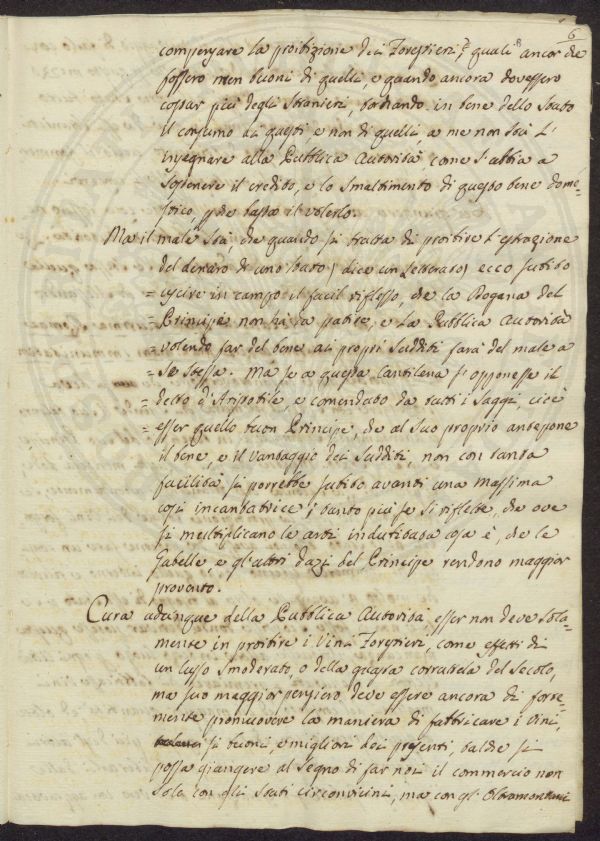 6
compensare la proibizione dei Forestieri, quali ancor che
fossero men buoni di quelli, e quando ancora dovessero
costar più degli stranieri, tornando in bene dello Stato
il consumo di questi e non di quelli, a me non stà l'
insegnare alla Pubblica Autorità come s'abbia a
sostenere il credito, e lo smaltimento di questo bene dome=
stico, che basta il volerlo.
Ma il male stà, che quando si tratta di proibire l'estrazione
del denaro di uno stato (dice un Letterato) ecco subito
= uscire in campo il facil riflesso, che la Dogana del
= Principe non hà da patire, e la Pubblica Autorità
= volendo far del bene ai propri sudditi farà del male a
= se stessa. Ma se a questa Cantilena s'opponesse il
= detto d'Aristotile, e comendato da tutti i Saggi, cioè
= esser quello buon Principe, che al suo proprio antepone
il bene, e il vantaggio dei sudditi, non con tanta
facilità si porrebbe subito avanti una massima
così incantatrice; tanto più se si riflette, che ove
si multiplicano le arti indubitata cosa è, che le
Gabelle e gl'altri dazi del Principe rendono maggior
provento.
Cura adunque della Pubblica Autorità esser non deve sola=
mente in proibire i Vini Forestieri, come effetti di
un lusso smoderato, o della guasta corruttela del Secolo,
ma suo maggior pensiero deve essere ancora di forte=
mente promuovere la maniera di fabbricare i Vini
si buoni, e migliori dei presenti, talchè si
possa giungere al segno di far noi il commercio non
solo con gli stati circonvicini, ma con gl'Oltramontani